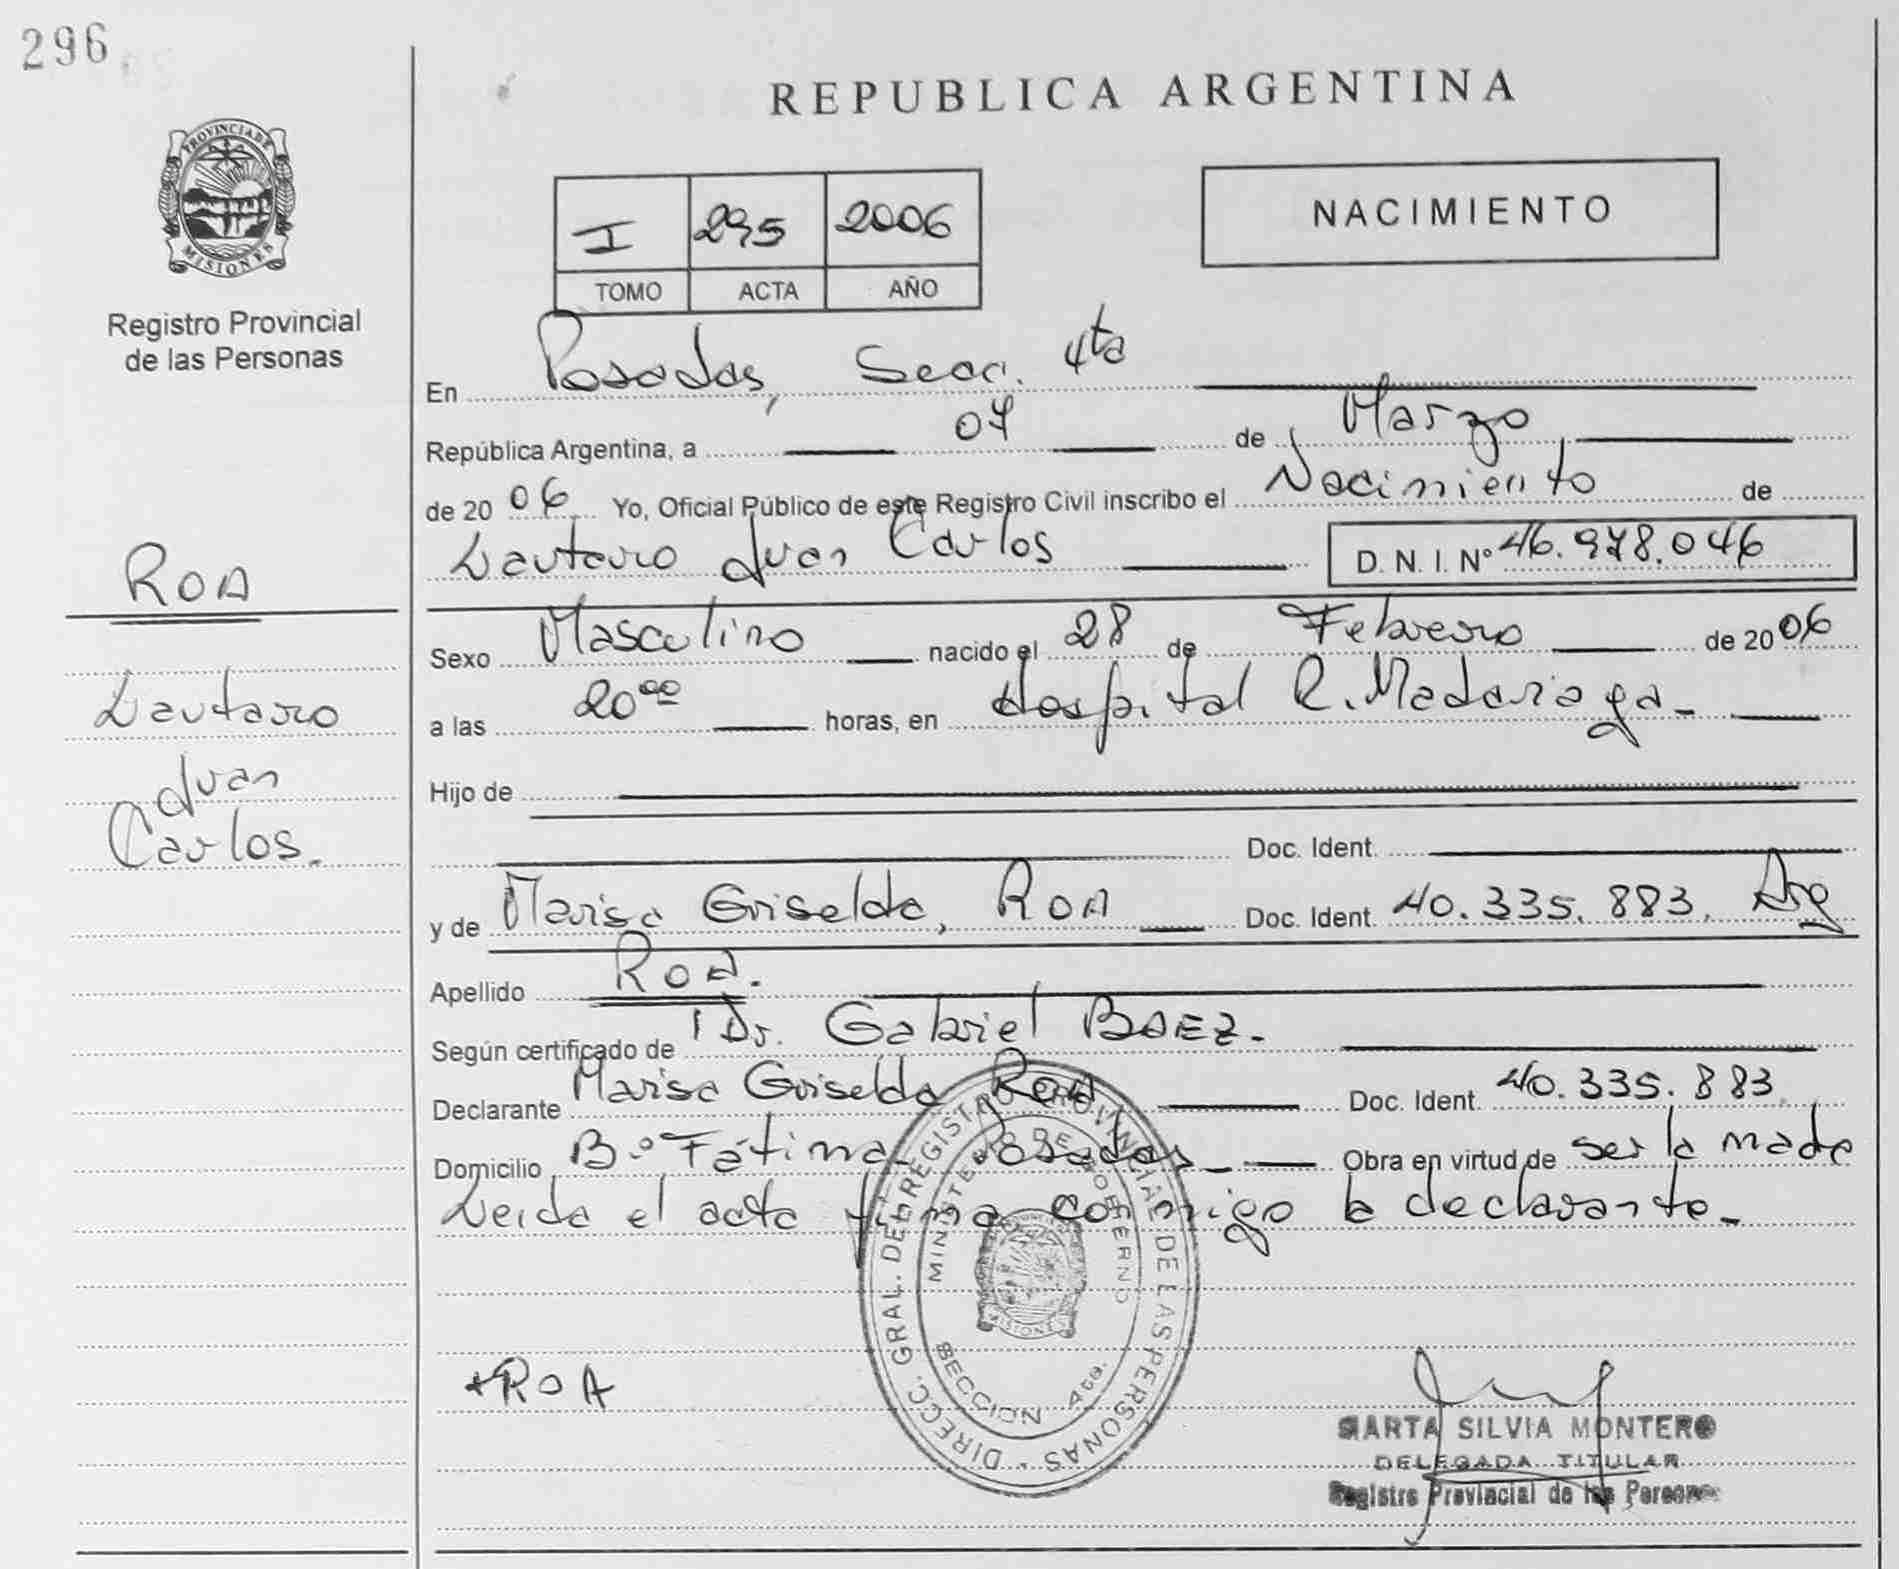 296
REPUBLICA ARGENTINA
PROVINCIA DE
MISIONES
Registro Provincial
de las Personas
I 295 2006
TOMO ACTA AÑO
NACIMIENTO
En Posadas, Secc. 4ta
República Argentina, a 07 de Marzo
de 2006 Yo, Oficial Público de este Registro Civil inscribo el Nacimiento de
Lautaro Juan Carlos D.N.I. Nº 46.978.046
ROA
Lautaro
Juan
Carlos.
Sexo Masculino nacido el 28 de Febrero de 2006
a las 20ºº horas, en Hospital R. Madariaga-
Hijo de
Doc. Ident.
y de Marisa Griselda, ROA Doc. Ident. 40.335.883. Arg
Apellido ROA.
Según certificado de Dr. Gabriel BAEZ.-
Declarante Marisa Griselda ROA Doc. Ident. 40.335.883
Domicilio Bº Fátima- Posadas- Obra en virtud de ser la madre
Leida el acta firma conmigo la declarante-
DIRECC. GRAL. DEL REGISTRO PROVINCIAL DE LAS PERSONAS
MINISTERIO DE GOBIERNO
MISIONES
SECCION 4ta.
+ROA
MARTA SILVIA MONTERO
DELEGADA TITULAR
Registro Provincial de las Personas